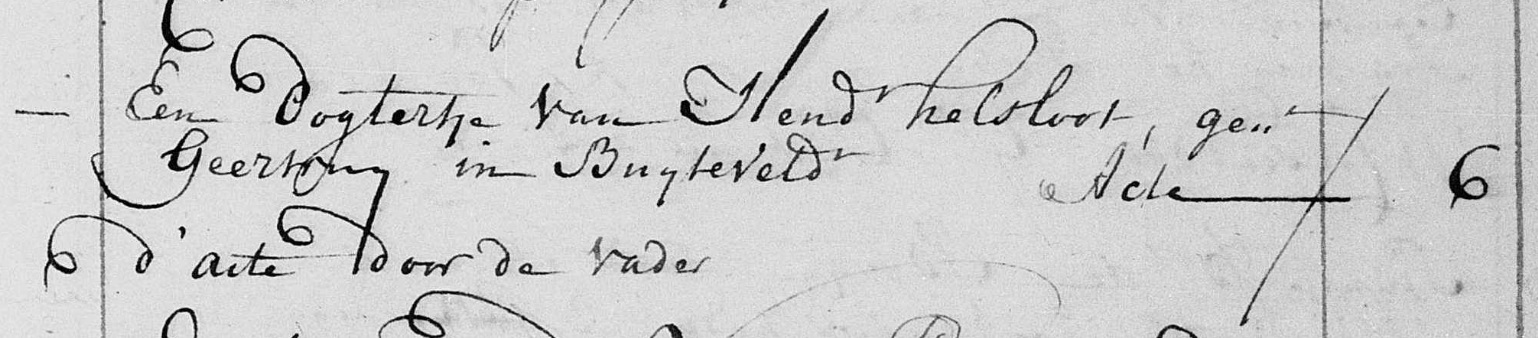 — Een Dogtertje van Hendr helsloot, gent
Geertruy in Buyteveldr Acte 6
d'acte door de vader